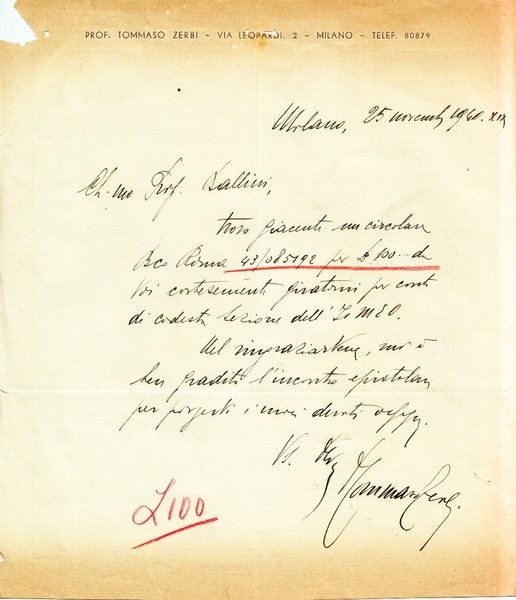 PROF. TOMMASO ZERBI - VIA LEOPARDI, 2 - MILANO - TELEF. 80879
Milano, 25 novembre 1940. XIX
Ch.mo Prof. Ballini,
trovo giacente un circolare
Bco Roma 43/085192 per £ 100.- da
Voi cortesemente giratomi per conto
di codesta Sezione dell'IsMEO.
Nel ringraziarVene, mi è
ben gradito l'incontro epistolare
per porgerVi i miei devoti ossequi.
Vs.
Tommaso Zerbi
£ 100